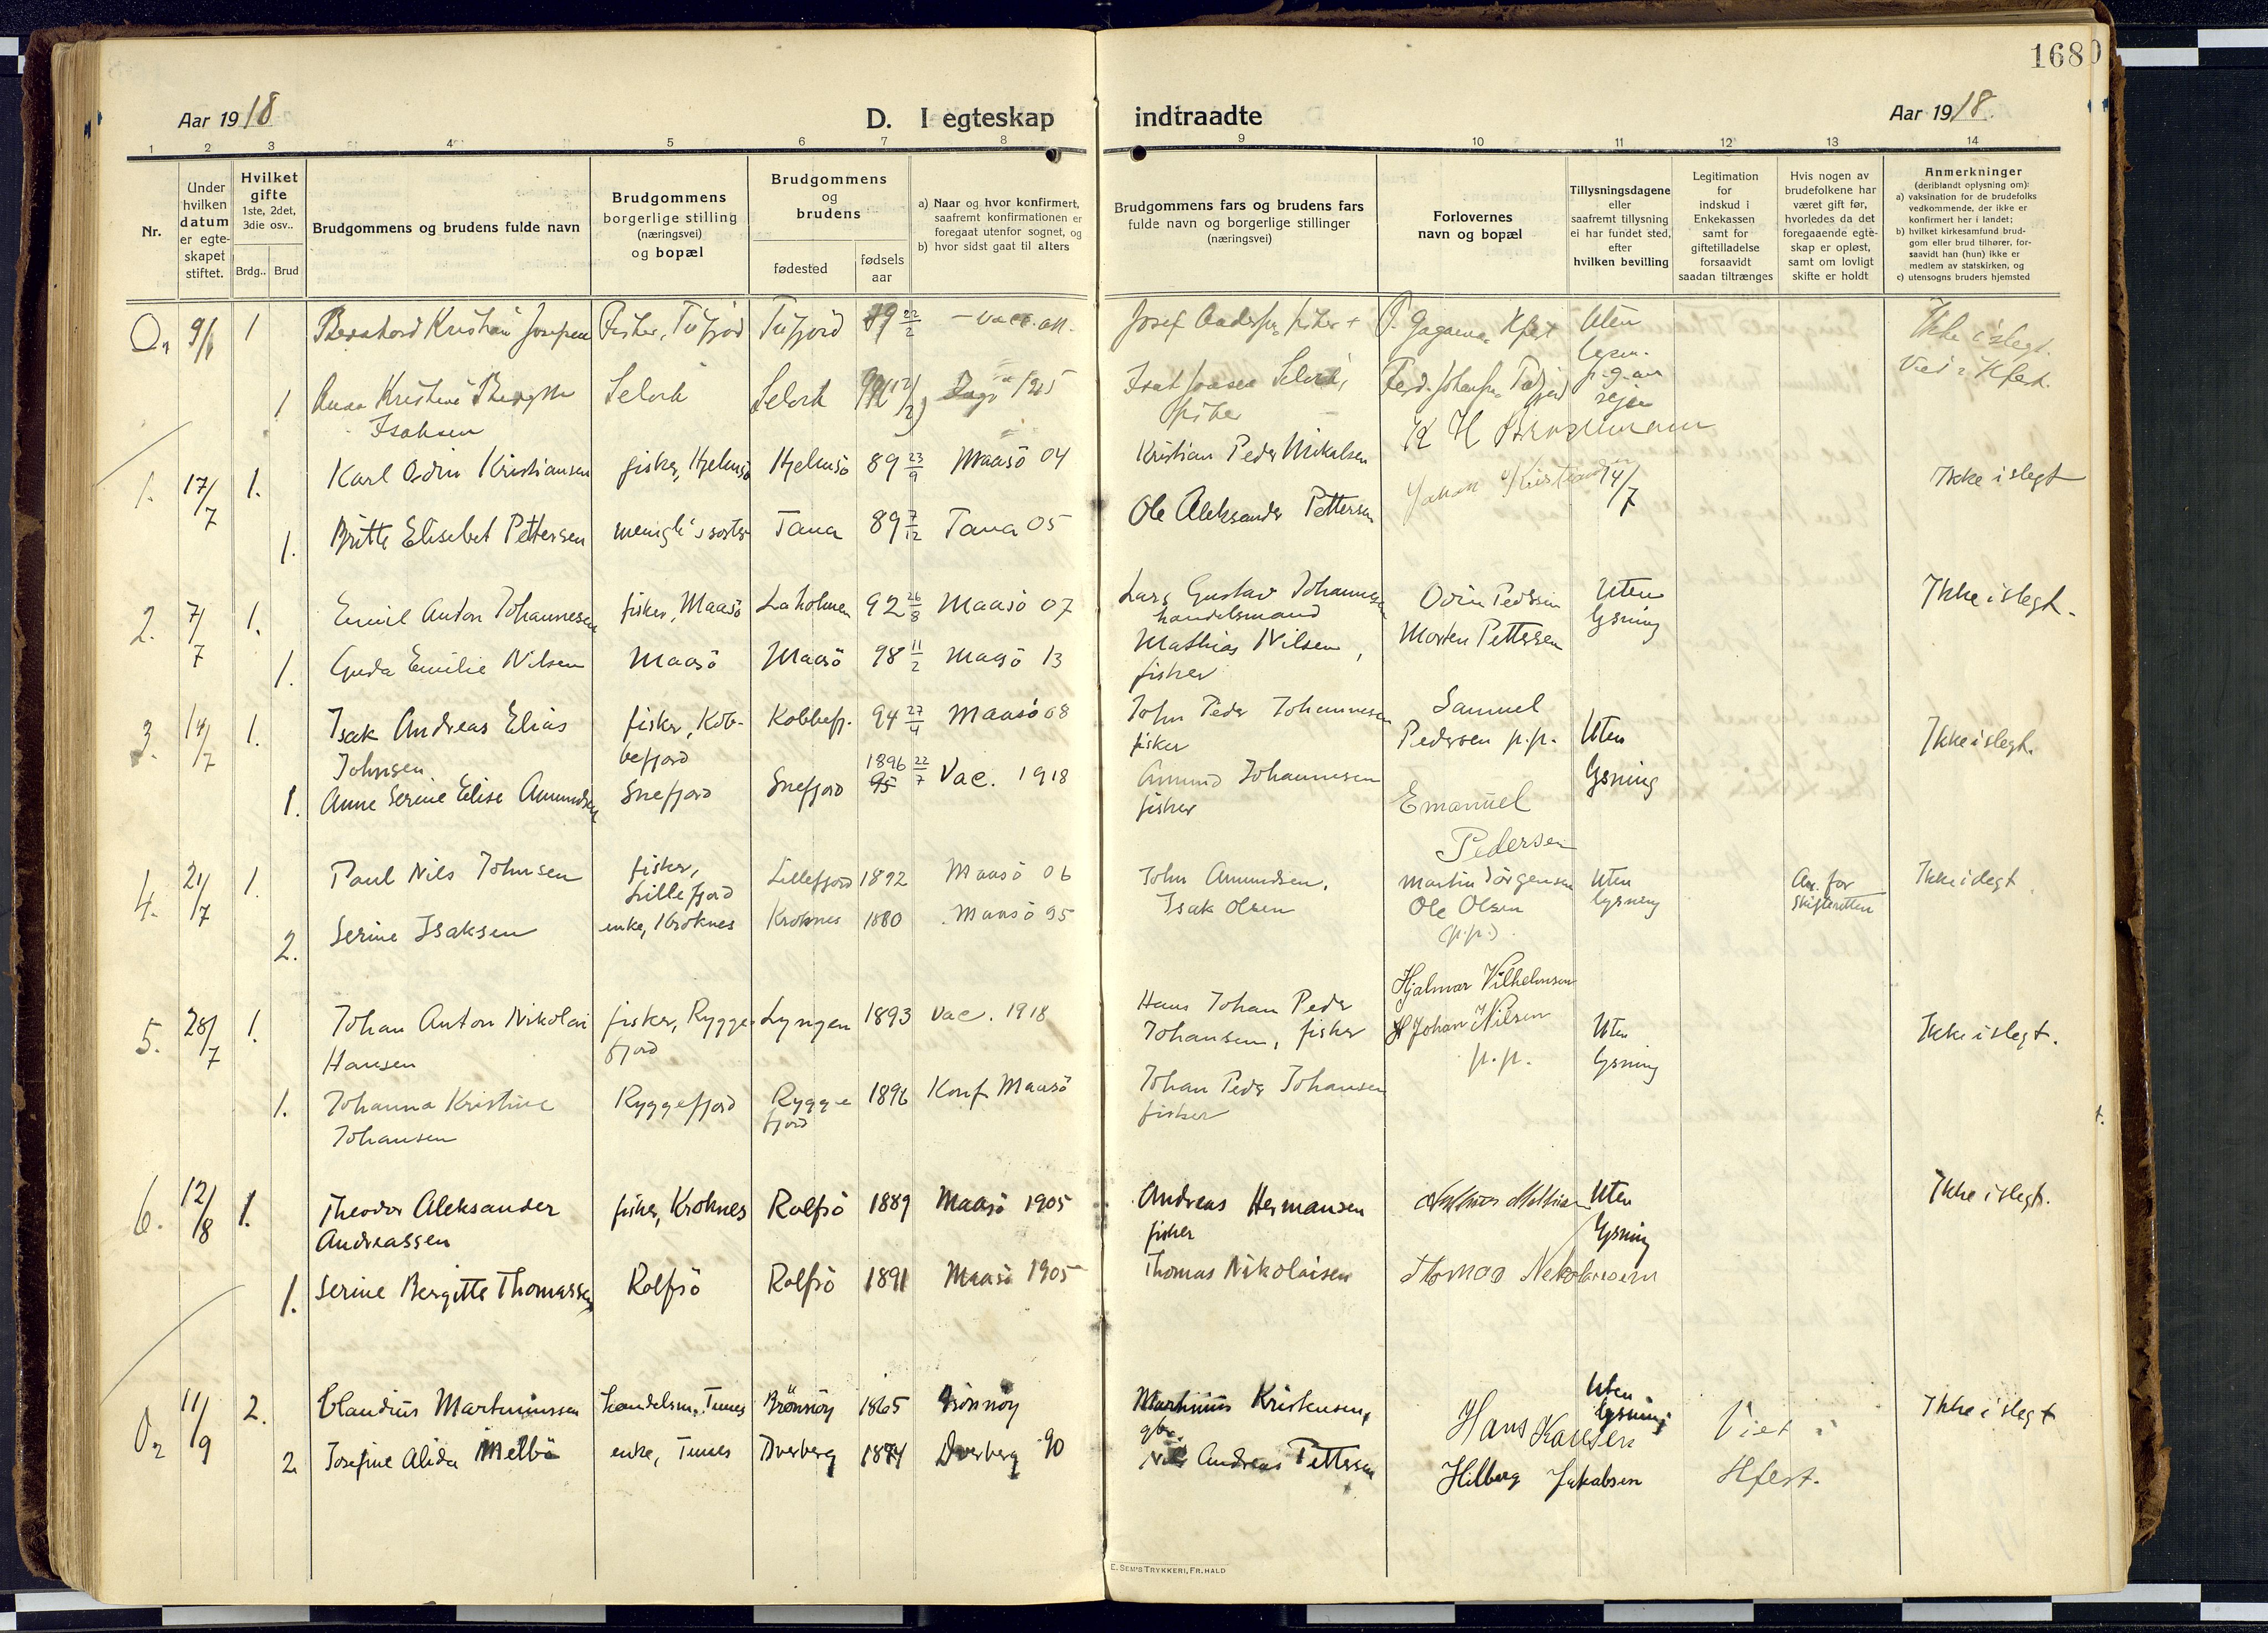 168
Aar 1918
D. I egteskap indtraadte
Aar 1918.
1 2 3 4 5 6 7 8 9 10 11 12 13 14
Nr.
Under hvilken datum er egteskapet stiftet.
Hvilket gifte 1ste, 2det, 3die osv..
Brdg.. Brud
Brudgommens og brudens fulde navn
Brudgommens borgerlige stilling (næringsvei) og bopæl
Brudgommens og brudens
fødested
fødsels aar
a) Naar og hvor konfirmert, saafremt konfirmationen er foregaat utenfor sognet, og
b) hvor sidst gaat til alters
Brudgommens fars og brudens fars fulde navn og borgerlige stillinger (næringsvei)
Forlovernes navn og bopæl
Tillysningsdagene eller saafremt tillysning ei har fundet sted, efter hvilken bevilling
Legitimation for indskud i Enkekassen samt for giftetilladelse forsaavidt saadan tiltrænges
Hvis nogen av brudefolkene har været gift før, hvorledes da det foregaaende egteskap er opløst, samt om lovligt skifte er holdt
Anmerkninger (deriblandt oplysning om):
a) vaksination for de brudefolks vedkommende, der ikke er konfirmert her i landet;
b) hvilket kirkesamfund brudgom eller brud tilhører, forsaavidt han (hun) ikke er medlem av statskirken, og
c) utensogns bruders hjemsted
9/1 1 Kristian Fisker, Tufjord Tufjord 89 22/2 Josef fisker Uten Ikke i slegt.
1 Anna Kristine Selvik Selvik Isak Selvik, Viet i Hfest.
Isaksen fisker
1. 17/7 1. Karl Odin Kristiansen fisker, Hjelmsö Hjelmsö 89 23/9 Maasö 04 Kristian Peder Mikalsen 14/7 Ikke i slegt
1. Britte Elisebet Pettersen Tana 89 7/12 Tana 05 Ole Aleksander Pettersen
2. 7/7 1. Emil Anton Johannesen fisker, Maasö Laholmen 92 26/8 Maasö 07 Lars Gustav Johannesen handelsmand Odin Pedersen Uten lysning Ikke i slegt.
1. Emilie Nilsen Maasö Maasö 98 11/2 Maasö 13 Mathias Nilsen, fisker Morten Pettersen
3. 14/7 1. Isak Andreas Elias Johnsen fisker, Kobbefjord Kobbefj. 94 27/4 Maasö 08 John Peder Johannesen fisker Samuel Pedersen p.p. Uten lysning Ikke i slegt.
1. Anne Serine Elise Amundsen Snefjord Snefjord 1896 95 22/7 Vac. 1918 Amund Johannesen fisker Emanuel Pedersen
4. 21/7 1. Paul Nils Johnsen fisker, Lillefjord Lillefjord 1892 Maasö 06 John Amundsen. Martin Jörgensen Uten lysning An. for Skifteretten Ikke i slegt
2. Serine Isaksen enke, Kroknes Kroknes 1880 Maasö 95 Isak Olsen Ole Olsen (p.p.).
5. 28/7 1. Johan Anton Nikolai Hansen fisker, Ryggefjord Lyngen 1893 Vac. 1918 Hans Johan Peder Johansen, fisker Hjalmar Vilhelmsen H Johan Nilsen p.p. Uten lysning Ikke i slegt.
1. Johanna Kristine Johansen Ryggefjord Ryggefjord 1896 Konf. Maasö Johan Peder Johansen fisker
6. 12/8 1. Theodor Aleksander Andreassen fisker, Kroknes Rolfsö 1889 Maasö 1905 Andreas Hermansen fisker Uten lysning Ikke i slegt.
1. Serine Bergitte Thomassen Rolfsö Rolfsö 1891 Maasö 1905 Thomas Nikolaisen Thomas Nikolaisen
11/9 2. Claudius Martinussen handelsm. Tunes Brönnöy 1865 Brönnöy Martinus Kristensen, gbr. Hans Karlsen Uten lysning Viet i Ikke i slegt
2 Josefine Alida Melbö enke, Tunes Dverberg 1874 Dverberg 90 Nils Andreas Pettersen Hilberg Jakobsen Hfest.
E. SEM'S TRYKKERI, FR. HALD